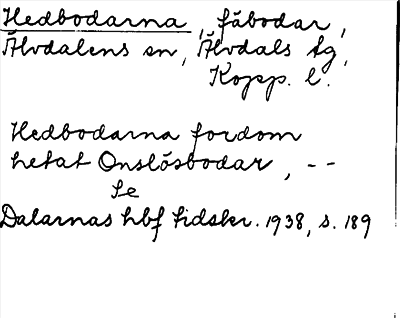 Hedbodarna, fäbodar,
Älvdalens sn, Älvdals tg,
Kopp. l.
Hedbodarna fordom
hetat Onslösbodar, --
Se
Dalarnas hbf tidskr. 1938, s. 189